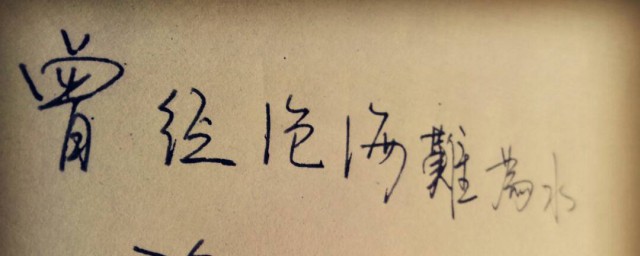 曾经沧海難為水